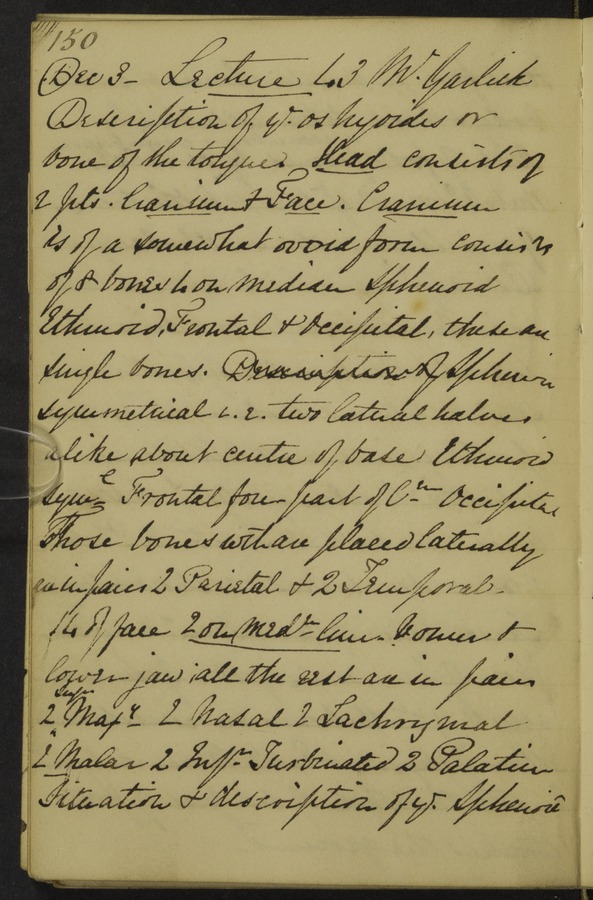 150
Dec 3 - Lecture 43 Mr. Garlick
Description of ye. os hyoides or
bone of the tongue. Head consists of
2 pts. Cranium & Face. Cranium
is of a somewhat ovoid form consists
of 8 bones 4 on median Sphenoid
Ethmoid, Frontal & Occipital, these are
single bones. Description of Sphenoid
symmetrical i.e. two lateral halves
alike about centre of base Ethmoid
symml Frontal fore part of Cm Occipital
Those bones wch are placed laterally
are in pairs 2 Parietal & 2 Temporal -
14 of face 2 on Medn line. Vomer &
lower jaw all the rest are in pairs
2 Supr Maxy - 2 Nasal 2 Lachrymal
2 Malar 2 Infr Turbinated 2 Palatine
Situation & description of ye. Sphenoid